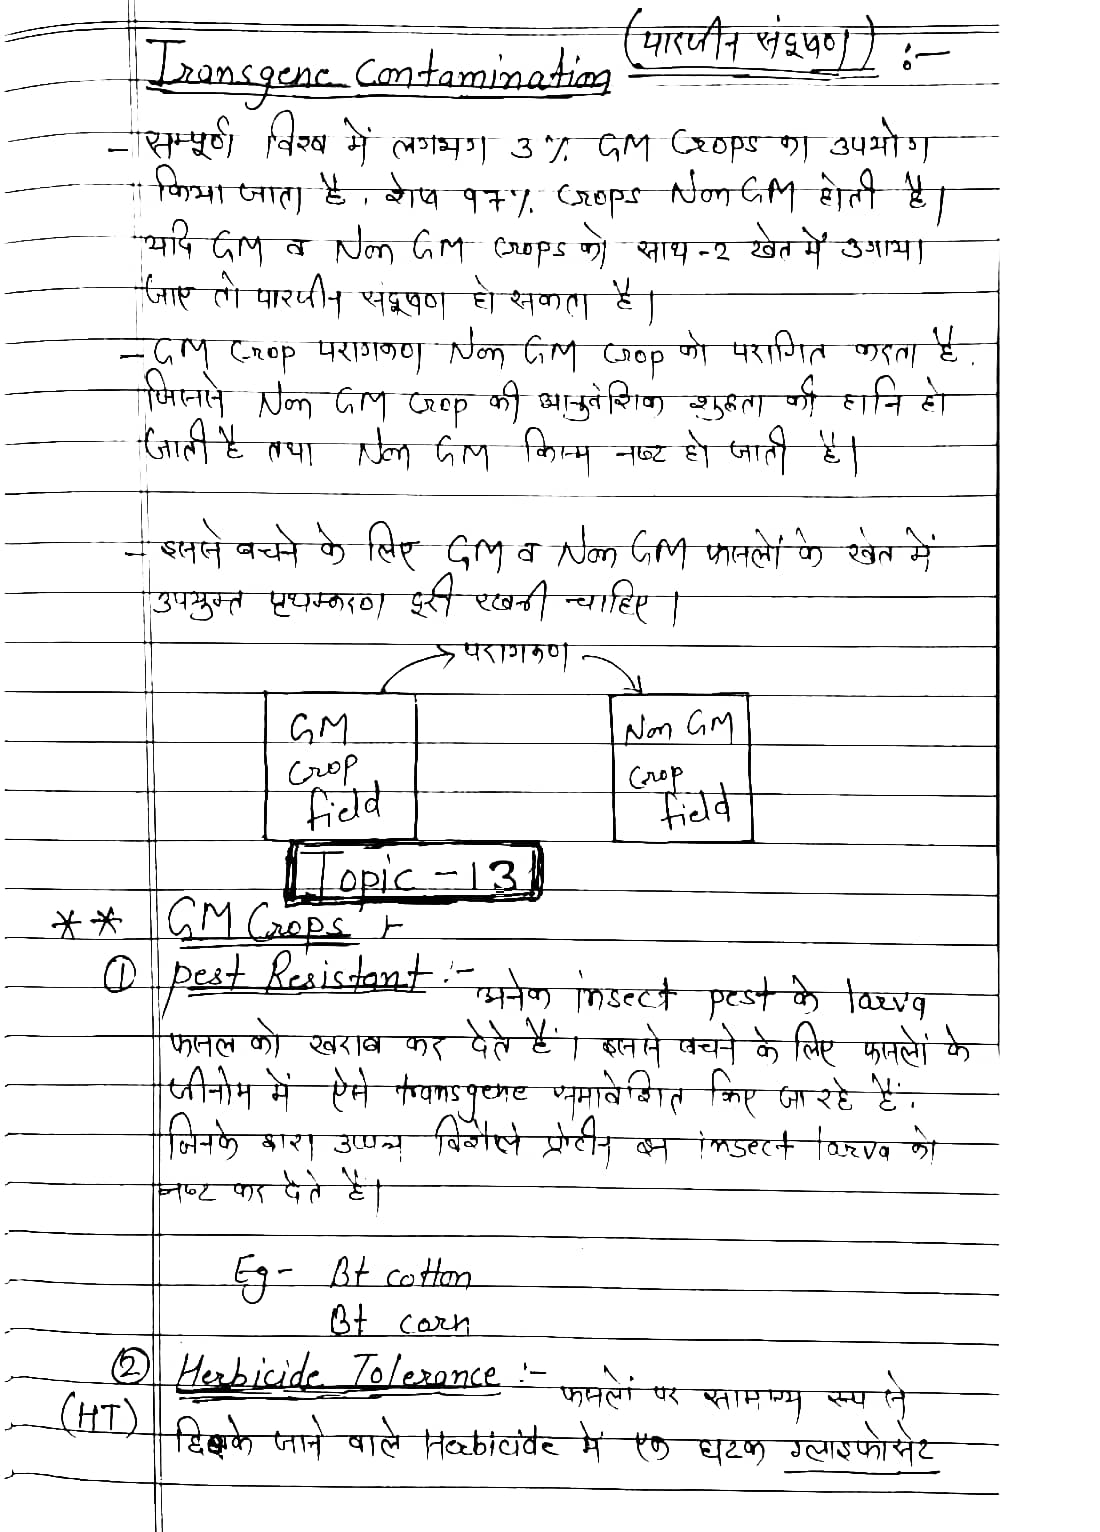 Transgene Contamination (पारजीन संदूषण) :-
- सम्पूर्ण विश्व में लगभग 3 % GM Crops का उपभोग
किया जाता है, शेष 97% Crops Non GM होती है।
यदि GM व Non GM Crops को साथ-2 खेत में उगाया
जाए तो पारजीन संदूषण हो सकता है।
- GM Crop परागकण Non GM Crop को परागित करता है.
जिससे Non GM Crop की आनुवंशिक शुद्धता की हानि हो
जाती है तथा Non GM किस्म नष्ट हो जाती है।
- इससे बचने के लिए GM व Non GM फसलों के खेत में
उपयुक्त पृथक्करण दूरी रखनी चाहिए।
परागकण
GM
Crop
field
Non GM
Crop
field
Topic -13
** GM Crops :-
① Pest Resistant :- अनेक insect pest के larva
फसल को खराब कर देते हैं। इससे बचने के लिए फसलों के
जीनोम में ऐसे transgene समावेशित किए जा रहे हैं.
जिनके द्वारा उत्पन्न विषैले प्रोटीन इन insect larva को
नष्ट कर देते हैं।
Eg- Bt cotton
Bt corn
② Herbicide Tolerance :- फसलों पर सामान्य रूप से
(HT) छिड़के जाने वाले Herbicide में एक घटक ग्लाइफोसेट